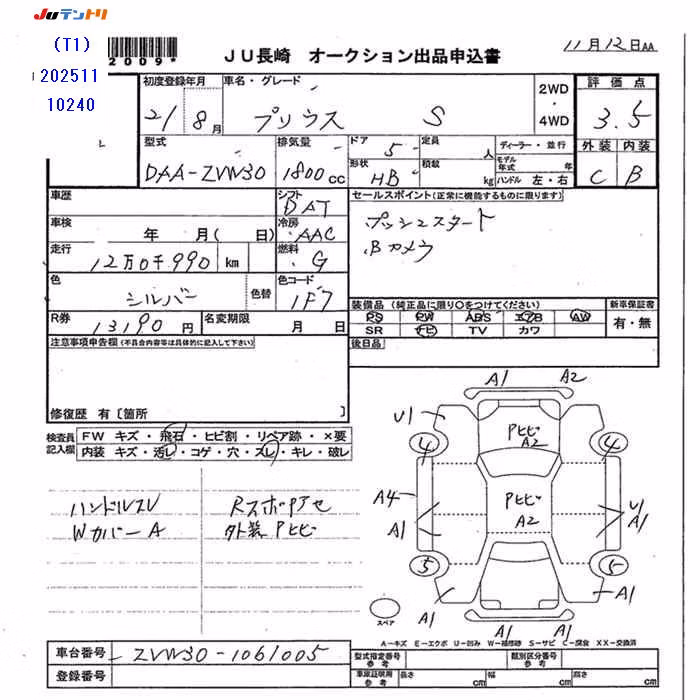 Juテントリ
(T1)
202511
10240
2009
JU長崎 オークション出品申込書
11月12日AA
初度登録年月 車名・グレード
21/8月 プリウス S
2WD・4WD
評価点
3.5
外装 内装
C B
型式 排気量 ドア 定員 ディーラー・並行
DAA-ZVW30 1800cc 5 人 モデル年式 年
形状 積載
HB kg ハンドル 左・右
車歴 シフト セールスポイント(正常に機能するものに限ります)
DAT プッシュスタート
車検 年 月(日) 冷房 AAC Bカメラ
走行 12万0千990km 燃料 G
色 シルバー 色替 色コード 1F7
装備品(純正品に限り○をつけてください) 新車保証書
R券 13190円 名変期限 月 日
PS PW ABS エアB AW 有・無
SR ナビ TV カワ
注意事項申告欄(不具合内容等は具体的に記入して下さい) 後日品
修復歴 有〔箇所 〕
検査員記入欄 FW キズ・飛石・ヒビ割・リペア跡・×要
内装 キズ・汚レ・コゲ・穴・スレ・キレ・破レ
ハンドルスレ RスポアセA
Wカバー A 外装Pヒビ
A1 A2
U1 PヒビA2
4 4
A4 PヒビA2 U1
A1 A1
5 5
A1 A1
A1 A1
スペア
A-キズ E-エクボ U-凹み W-補修跡 S-サビ C-腐食 XX-交換済
車台番号 ZVW30-1061005 型式指定番号 参考 類別区分番号 参考
登録番号 車庫証明用 参考 長さ cm 幅 cm 高さ cm